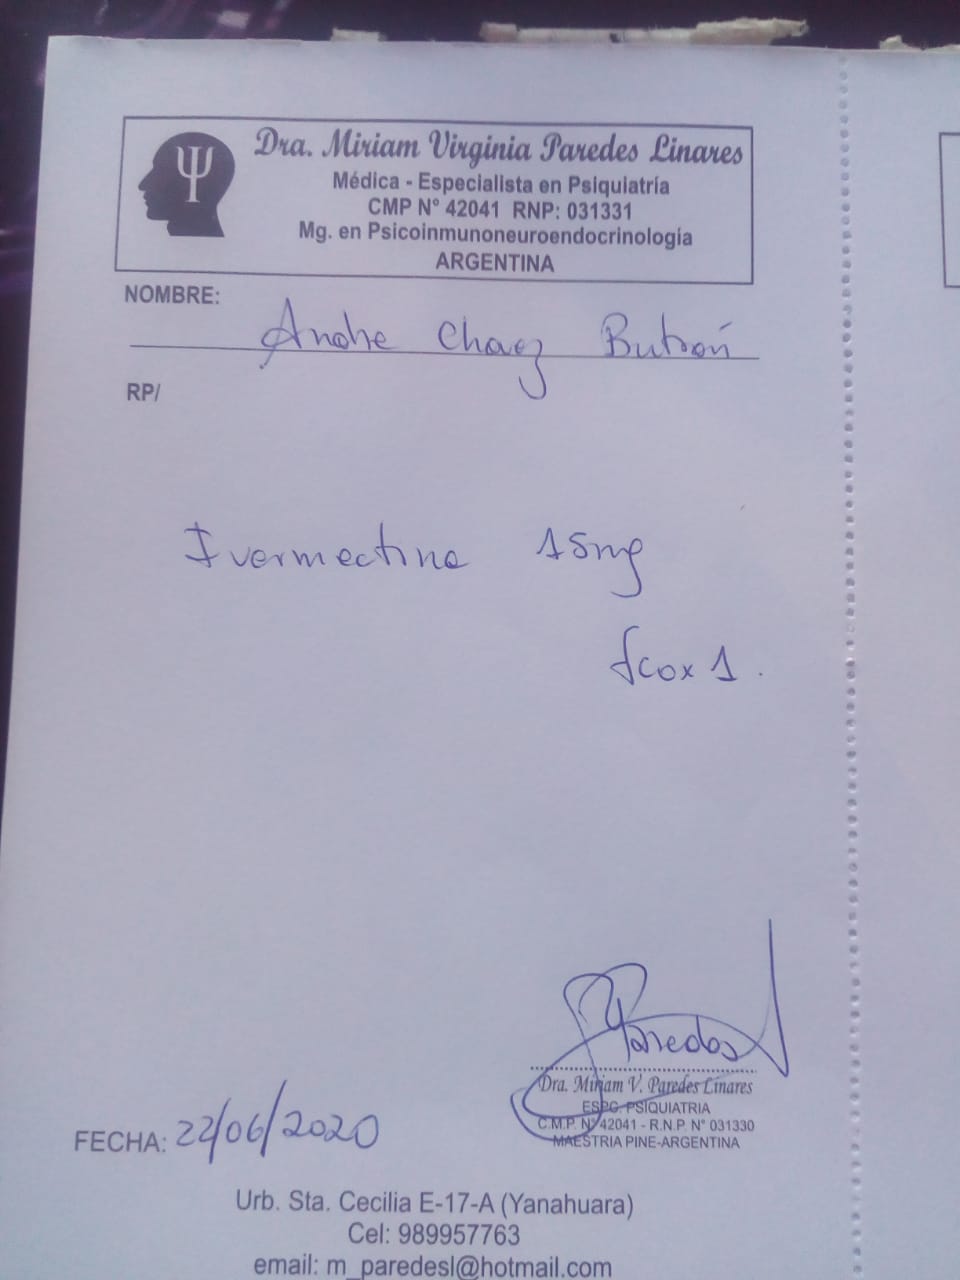 Dra. Miriam Virginia Paredes Linares
Médica - Especialista en Psiquiatría
CMP N° 42041 RNP: 031331
Mg. en Psicoinmunoneuroendocrinología
ARGENTINA
NOMBRE:
Andre Chavez Butrón
RP/
Ivermectina 15mg
fcox 1.
Paredes
Dra. Miriam V. Paredes Linares
ESPC. PSIQUIATRIA
C.M.P. N° 42041 - R.N.P. N° 031330
MAESTRIA PINE-ARGENTINA
FECHA: 22/06/2020
Urb. Sta. Cecilia E-17-A (Yanahuara)
Cel: 989957763
email: m_paredesl@hotmail.com